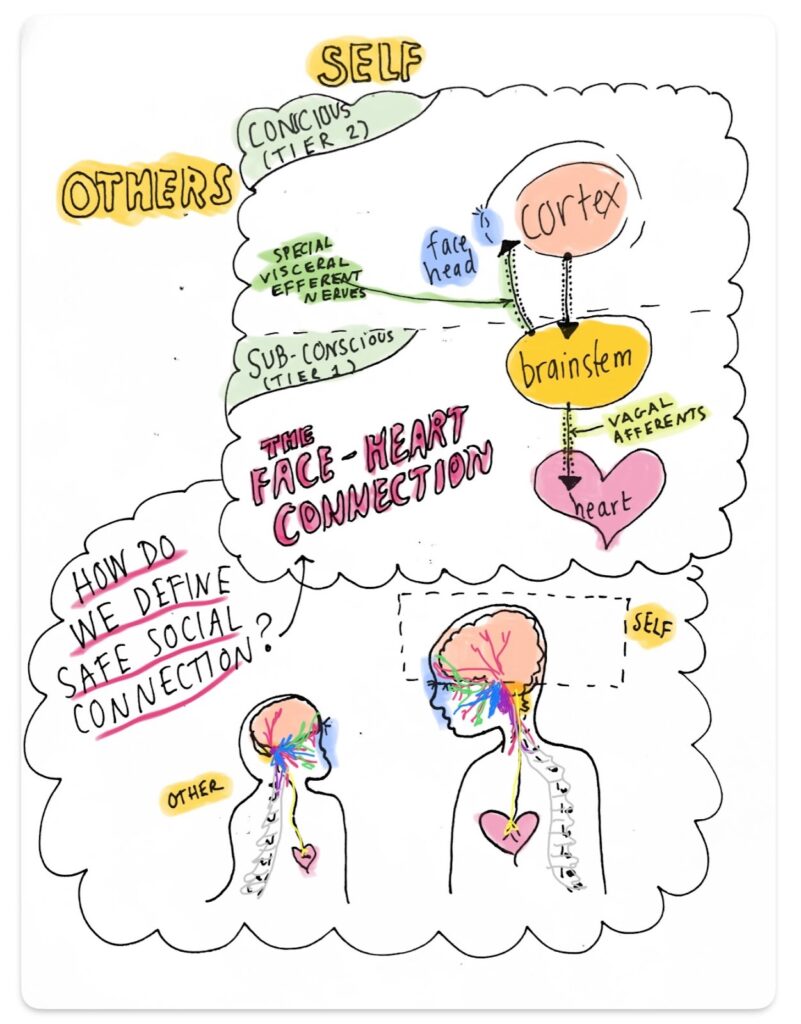 SELF
OTHERS
CONSCIOUS
(TIER 2)
cortex
face
head
SPECIAL
VISCERAL
EFFERENT
NERVES
SUB-CONSCIOUS
(TIER 1)
brainstem
VAGAL
AFFERENTS
heart
THE
FACE-HEART
CONNECTION
HOW DO
WE DEFINE
SAFE SOCIAL
CONNECTION?
SELF
OTHER